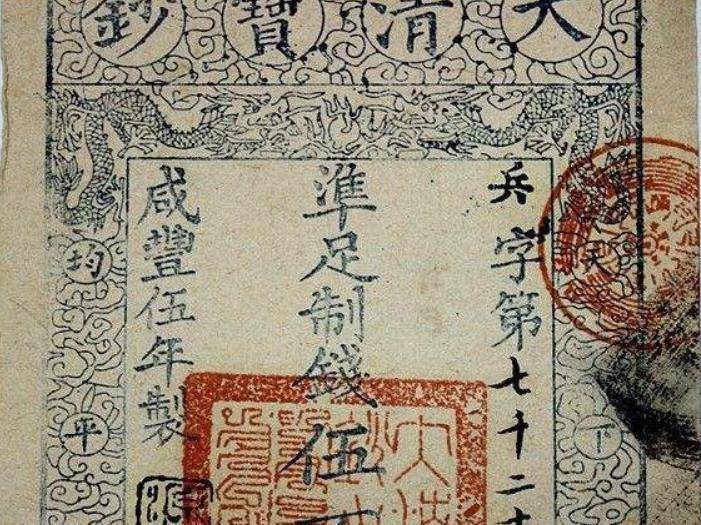 大清寶鈔
天
下
兵字第七千二十
準足制錢伍百
咸豐伍年製
均
平